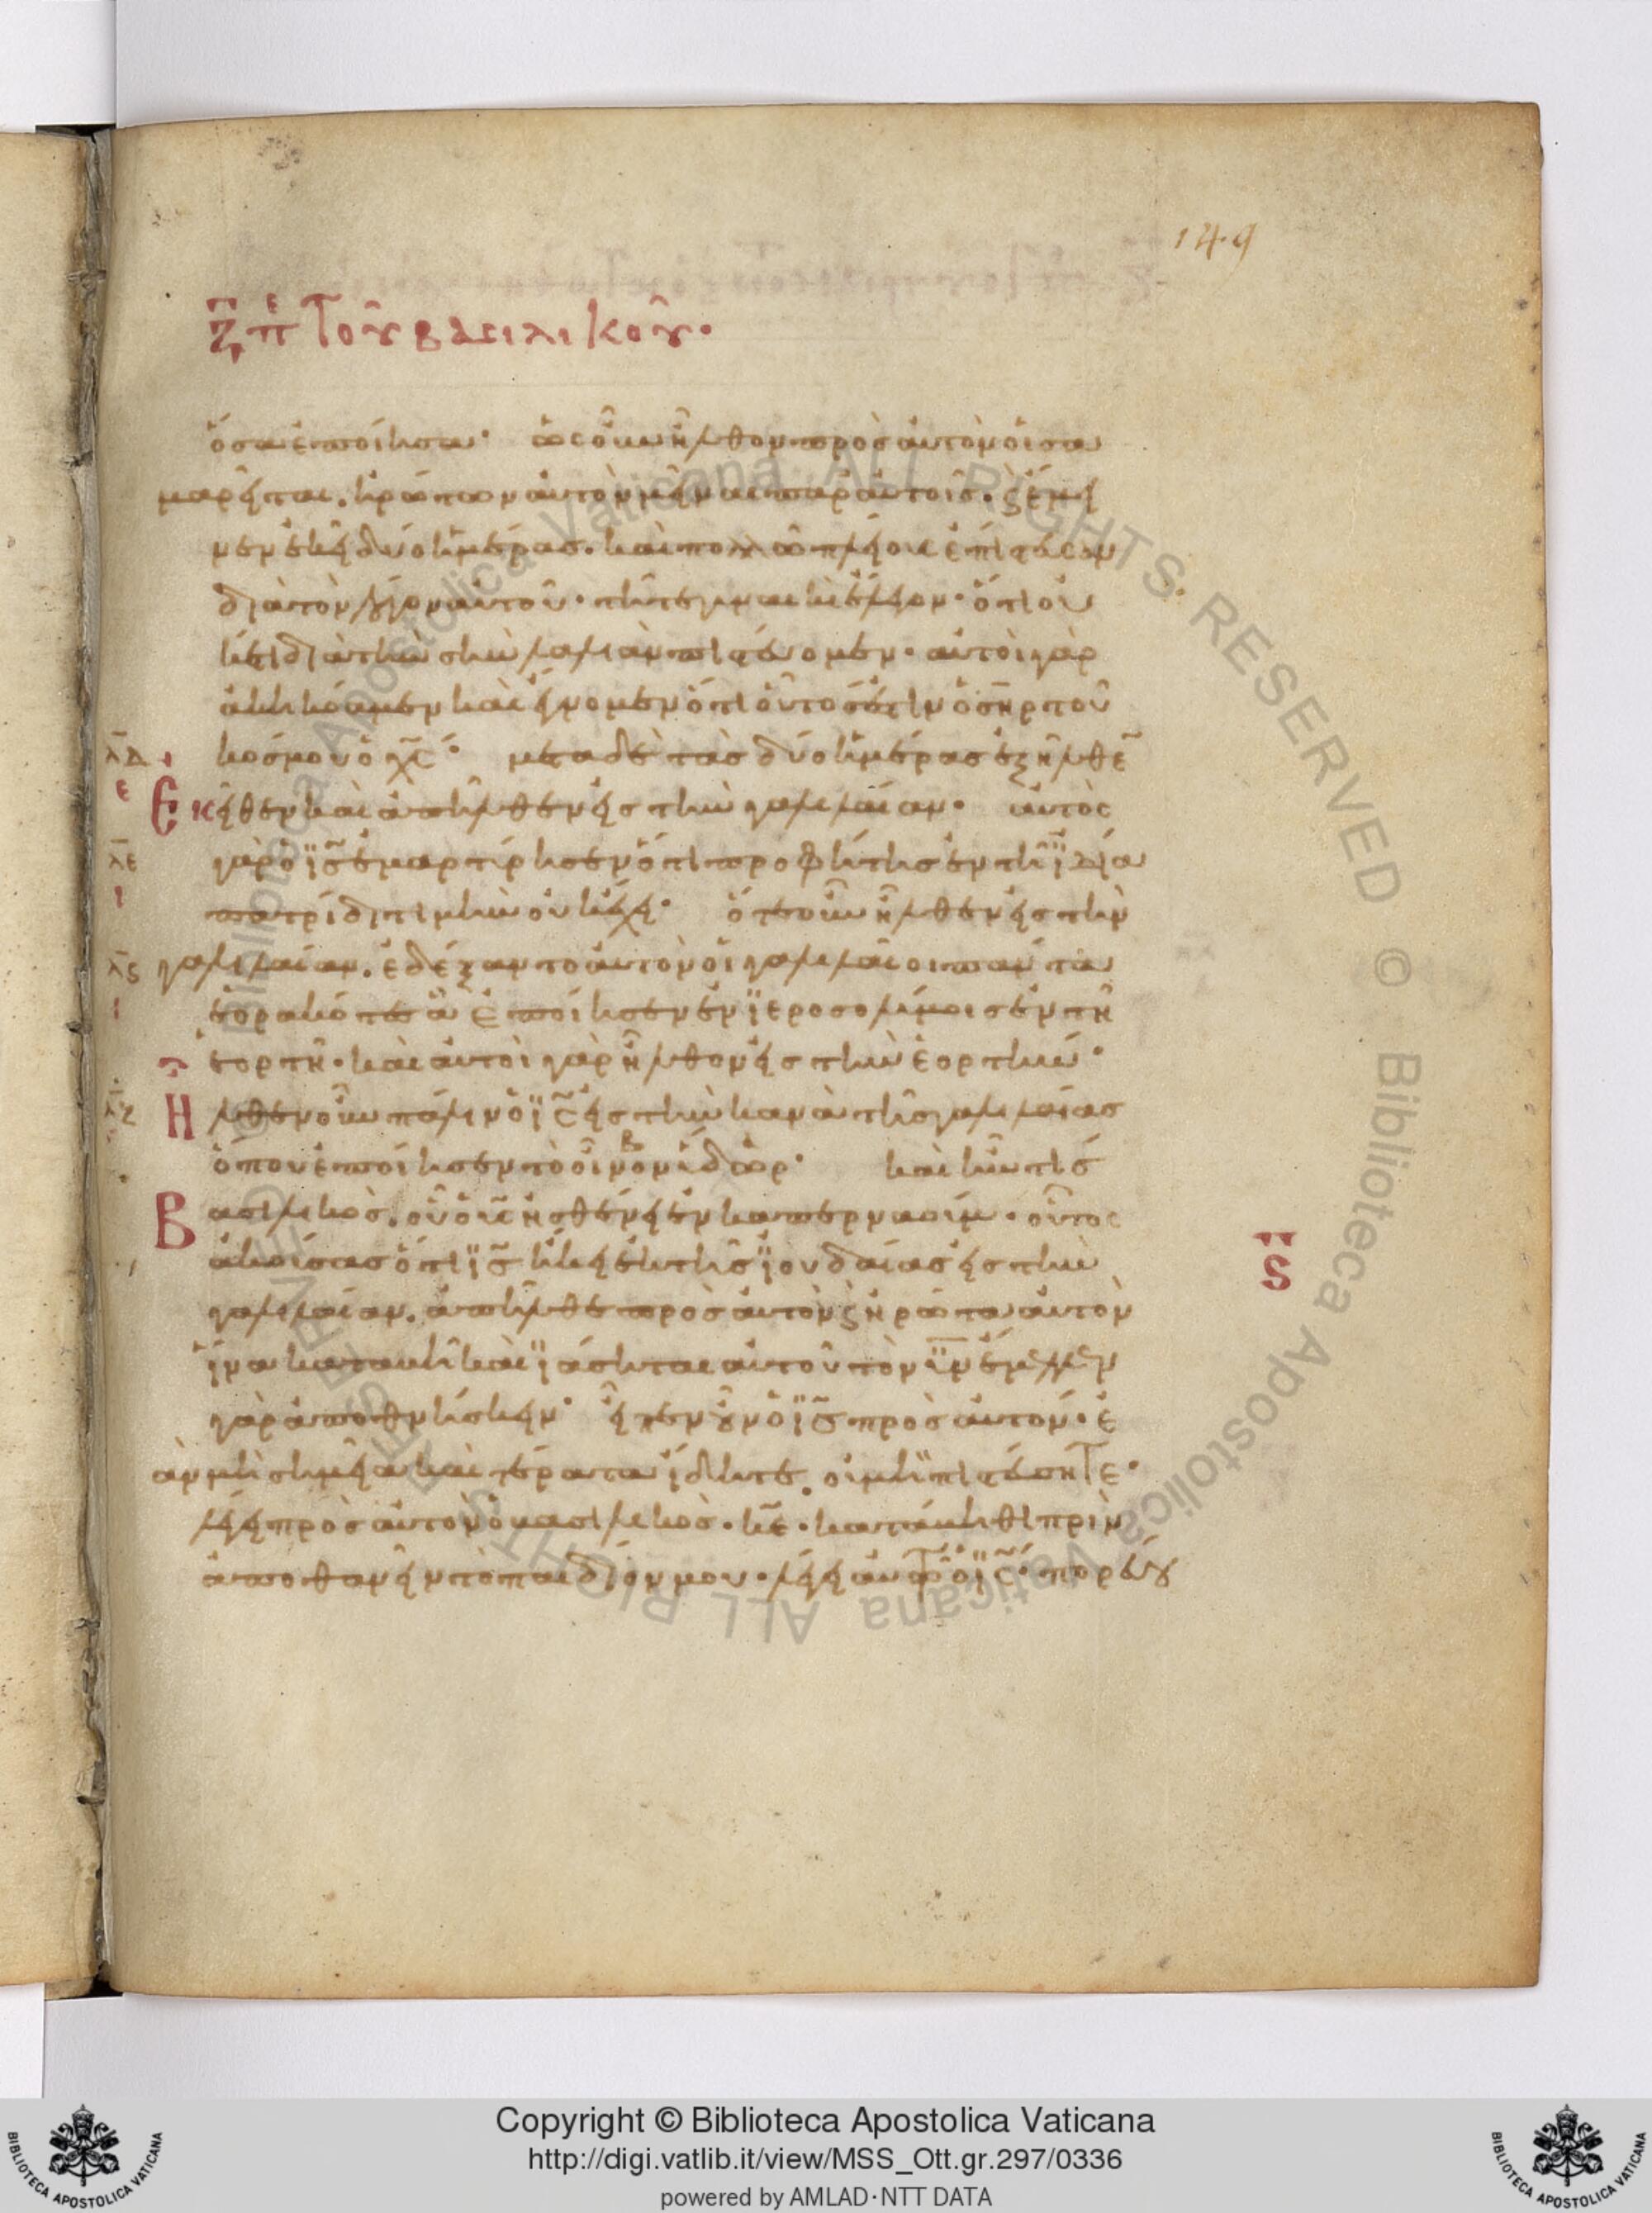 149
ὅσα ἐποίησα· ὡς οὖν ἦλθον πρὸς αὐτὸν οἱ σα
μαρεῖται. ἠρώτων αὐτὸν μεῖναι παρ αὐτοῖς. ϗ ἔμει
νεν ἐκεῖ δύο ἡμέρας. καὶ πολλῶ πλείους ἐπίστευσαν
διὰ τὸν λόγον αὐτοῦ· τῆ τε γυναικὶ ἔλεγον· ὅτι οὐ
κέτι διὰ τὴν σὴν λαλιὰν πιστεύομεν· αὐτοὶ γὰρ
ἀκηκόαμεν καὶ οἴδαμεν ὅτι οὗτός ἐστιν ὁ σηρ τοῦ
κόσμου ὁ χς· μετα δὲ τὰς δύο ἡμέρας ἐξῆλθε
Ἐκεῖθεν καὶ ἀπῆλθεν εἰς τὴν γαλιλαίαν· αὐτὸς
γὰρ ὁ ϊς ἐμαρτύρησεν ὅτι προφήτης ἐν τῆ ϊδία
πατρίδι τιμὴν οὐκ ἔχει· ὅτε οὖν ἦλθεν εἰς τὴν
γαλιλαίαν. ἐδέξαντο αὐτὸν οἱ γαλιλαῖοι πάντα
ἑορακότες ἃ ἐποίησεν ἐν ϊεροσολύμοις ἐν τῆ
ἑορτῆ· καὶ αὐτοὶ γὰρ ἦλθον εἰς τὴν ἑορτήν·
Ηλθεν οὖν πάλιν ὁ ϊς εἰς τὴν κανὰ τῆς γαλιλαίας
ὅπου ἐποίησεν τὸ οἶνον ὕδωρ· καὶ ἦν τὶς
Βασιλικὸς. οὗ ὁ υς ἠσθένει ἐν καπερναούμ· οὗτος
ἀκούσας ὅτι ϊς ἥκει ἐκ τῆς ϊουδαίας εἰς τὴν
γαλιλαίαν. ἀπῆλθε πρὸς αὐτὸν ϗ ἠρώτα αὐτὸν
ἵνα καταβῆ καὶ ϊάσηται αὐτοῦ τὸν υν ἔμελλεν
γὰρ ἀποθνήσκειν· εἶπεν οὖν ὁ ϊς πρὸς αὐτόν· ἐ
ὰν μὴ σημεῖα καὶ τέρατα ἴδητε. οὐ μὴ πιστεύσητε·
λέγει πρὸς αὐτὸν ὁ βασιλικὸς· κε· κατάβηθι πρὶν
ἀποθανεῖν τὸ παιδίον μου· λέγει αὐτῶ ὁ ϊς· πορεύου
λδ
ε
λε
ι
λς
ι
λζ
Copyright © Biblioteca Apostolica Vaticana
http://digi.vatlib.it/view/MSS_Ott.gr.297/0336
powered by AMLAD·NTT DATA
BIBLIOTECA APOSTOLICA VATICANA
BIBLIOTECA APOSTOLICA VATICANA